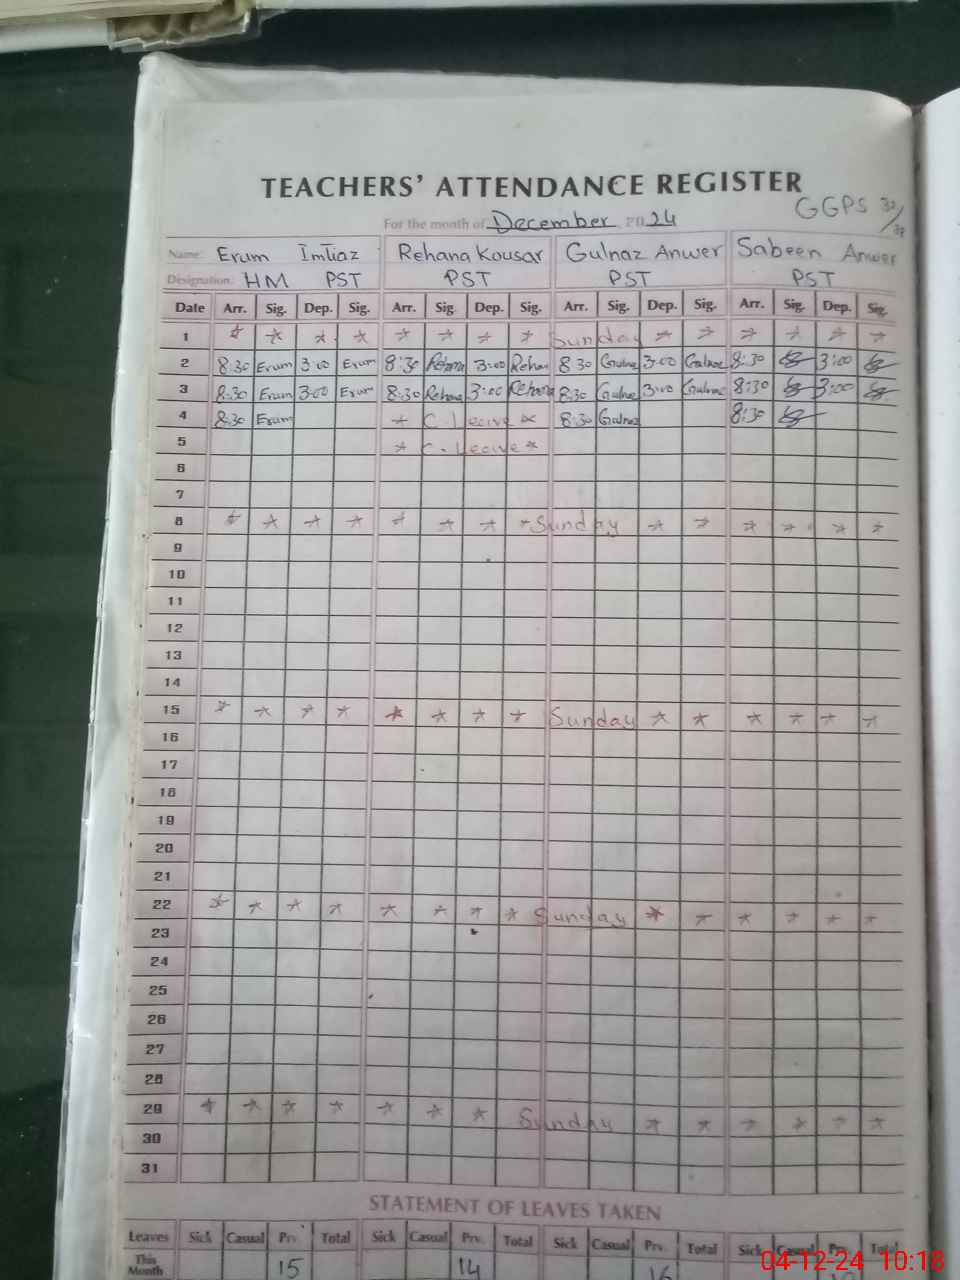 TEACHERS' ATTENDANCE REGISTER
GGPS
For the month of December 2024
Name: Erum Imtiaz Rehana Kousar Gulnaz Anwer Sabeen Anwer
Designation: HM PST PST PST PST
Date Arr. Sig. Dep. Sig. Arr. Sig. Dep. Sig. Arr. Sig. Dep. Sig. Arr. Sig. Dep. Sig.
1 * * * * * * * * Sunday * * * * * *
2 8:30 Erum 3:00 Erum 8:30 Rehana 3:00 Rehana 8:30 Gulnaz 3:00 Gulnaz 8:30 3:00
3 8:30 Erum 3:00 Erum 8:30 Rehana 3:00 Rehana 8:30 Gulnaz 3:00 Gulnaz 8:30 3:00
4 8:30 Erum * C. Leave * 8:30 Gulnaz 8:30
5 * C. Leave *
6
7
8 * * * * * * * * Sunday * * * * * *
9
10
11
12
13
14
15 * * * * * * * * Sunday * * * * * *
16
17
18
19
20
21
22 * * * * * * * * Sunday * * * * * *
23
24
25
26
27
28
29 * * * * * * * Sunday * * * * * *
30
31
STATEMENT OF LEAVES TAKEN
Leaves Sick Casual Prv. Total Sick Casual Prv. Total Sick Casual Prv. Total Sick Casual Prv. Total
This Month 15 14 16
04-12-24 10:18